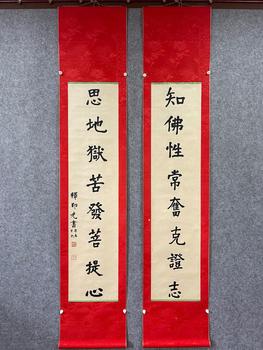 知佛性常奮克證志
思地獄苦發菩提心
釋印光書